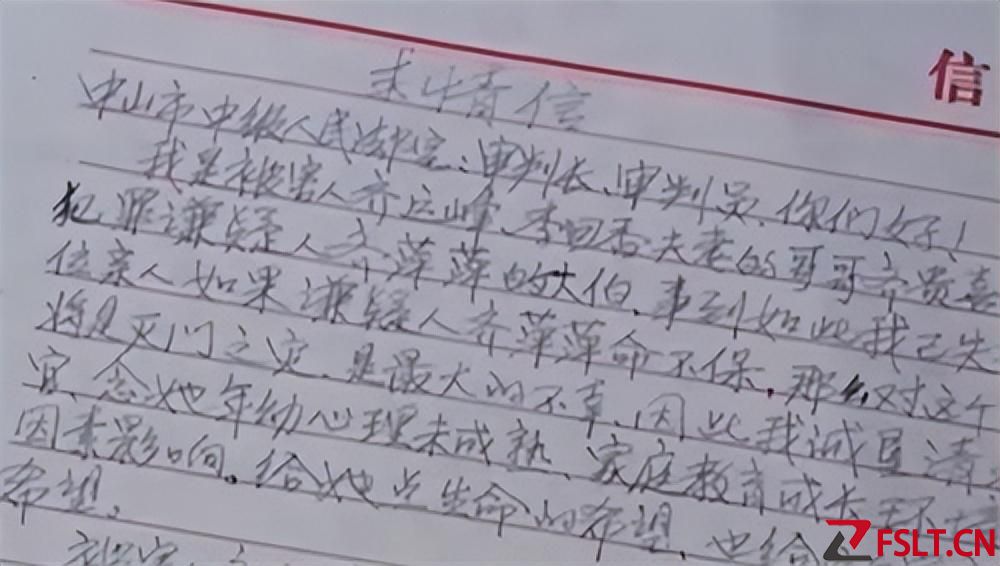 信
求情信
中山市中级人民法院:审判长、审判员、你们好!
我是被害人齐运峰、李回香夫老的哥哥齐贵喜
犯罪谦疑人齐萍萍的大伯,事到如此我已失
位亲人如果谦疑人齐萍萍命不保,那么对这个
将是灭门之灾,是最大的不幸,因此我诚恳请
官,念她年幼心理未成熟、家庭教育成长环
因素影响,给她点生命的希望,也给
希望,
被害
FSLT.CN